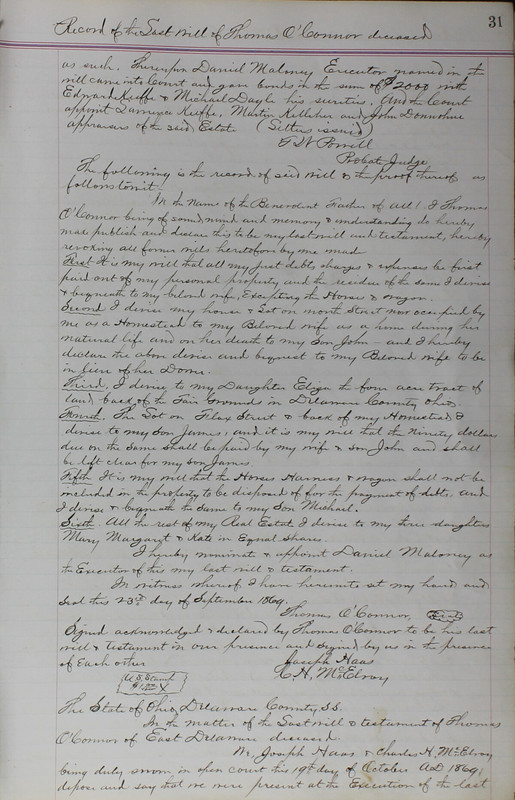 31
Record of the Last Will of Thomas O'Connor deceased
as such. Thereupon Daniel Maloney Executor named in the
will came into Court and gave bonds in the sum of $2000 with
Edward Keeffe & Michael Dayle his sureties. And the Court
appoint Keeffe, Martin Kelliher and John Donnohue
appraisers of the said Estate (Letters issued)
Powell
Probate Judge
The following is the record of said will & the proof thereof as
follows to wit.
In the Name of the Benevolent Father of All! I Thomas
O'Connor being of sound mind and memory & understanding do hereby
make publish and declare this to be my last will and testament, hereby
revoking all former wills heretofore by me made
First It is my will that all my just debts charges & expenses be first
paid out of my personal property and the residue of the same I devise
& bequeath to my beloved wife, Excepting the Horses & wagon.
Second I devise my house & Lot on north Street now occupied by
me as a Homestead to my Beloved wife as a home during her
natural life and on her death to my Son John - and I hereby
declare the above devise and bequest to my Beloved wife to be
in lieu of her Dower.
Third. I devise to my Daughter Eliza the four acre tract of
land back of the Fair Grounds in Delaware County Ohio.
Fourth. The Lot on Flax Street & back of my Homestead I
devise to my Son James, and it is my will that the Ninety dollars
due on the same shall be paid by my wife & son John and shall
be left clear for my son James.
Fifth It is my will that the Horses Harness & wagon shall not be
included in the property to be disposed of for the payment of debts, and
I devise & bequeath the same to my Son Michael.
Sixth. All the rest of my Real Estate I devise to my three daughters
Mary Margaret & Kate in Equal Shares.
I hereby nominate & appoint Daniel Maloney as
the Executor of this my last will & testament.
In witness whereof I have hereunto set my hand and
Seal this 23rd day of September 1869.
Thomas O'Connor, Seal
Signed acknowledged & declared by Thomas O'Connor to be his last
will & testament in our presence and signed by us in the presence
of Each other
Joseph Haas
C. H. McElroy
U.S. Stamp
The State of Ohio Delaware County S.S.
In the matter of the Last Will & testament of Thomas
O'Connor of East Delaware deceased
We, Joseph Haas & Charles H. McElroy
being duly sworn in open court this 19th day of October A.D. 1869,
depose and say that we were present at the Execution of the last